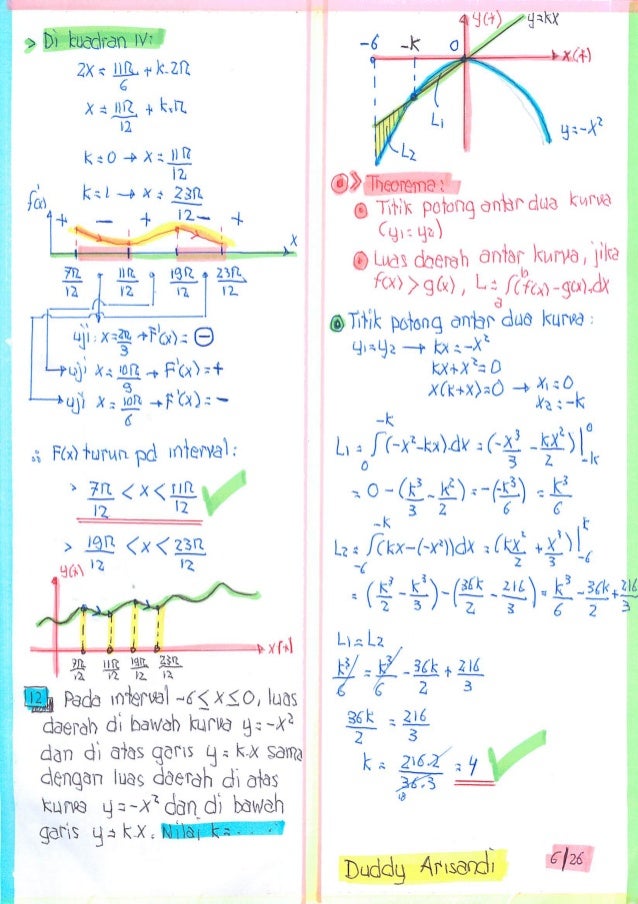 > Di kuadran IV:
2x = 11π/6 + k.2π
x = 11π/12 + k.π
k=0 → x = 11π/12
k=1 → x = 23π/12
f'(x)
+ − + − +
x
7π/12 11π/12 19π/12 23π/12
uji : x=2π/3 → F'(x) = ⊖
uji x = 10π/9 → F'(x) = +
uji x = 10π/6 → F'(x) = −
∴ F(x) turun pd interval:
> 7π/12 < x < 11π/12
> 19π/12 < x < 23π/12
y(x)
x(+)
7π/12 11π/12 19π/12 23π/12
12 Pada interval -6 ≤ x ≤ 0, luas
daerah di bawah kurva y = -x²
dan di atas garis y = k.x sama
dengan luas daerah di atas
kurva y = -x² dan di bawah
garis y = k.x. Nilai k = .....
y(+) y=kx
-6 -k 0 x(+)
L₁
L₂
y = -x²
>> Theorema :
Titik potong antar dua kurva
(y₁ = y₂)
Luas daerah antar kurva, jika
f(x) > g(x), L = ∫ₐᵇ(f(x) - g(x)).dx
Titik potong antar dua kurva :
y₁ = y₂ → kx = -x²
kx + x² = 0
x(k+x) = 0 → x₁ = 0
x₂ = -k
L₁ = ∫₀⁻ᵏ(-x²-kx).dx = (-x³/3 - kx²/2)|⁰₋ₖ
= 0 - (k³/3 - k³/2) = -(-k³/6) = k³/6
L₂ = ∫₋₆⁻ᵏ(kx-(-x²))dx = (kx²/2 + x³/3)|ᵏ₋₆
= (k³/2 - k³/3) - (36k/2 - 216/3) = k³/6 - 36k/2 + 216/3
L₁ = L₂
k³/6 = k³/6 - 36k/2 + 216/3
36k/2 = 216/3
k = 216.2/36.3 = 4
Duddy Arisandi
6/26